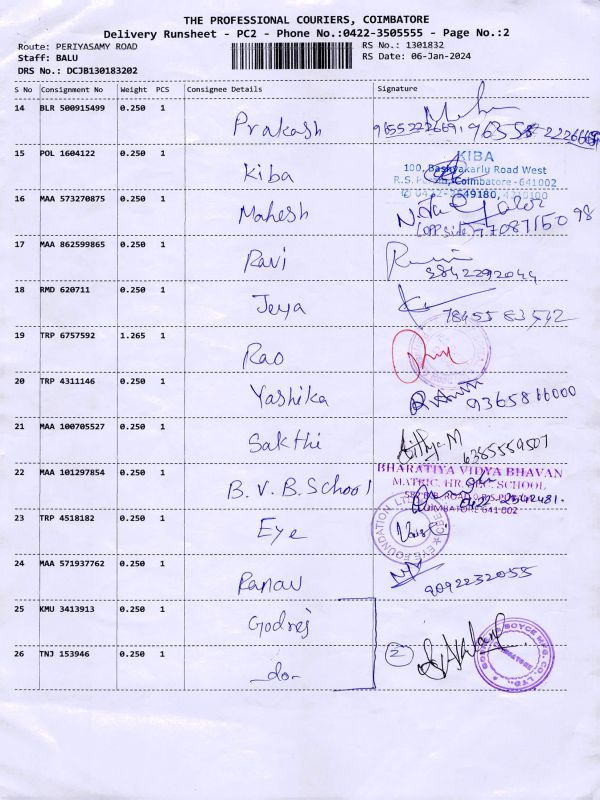 THE PROFESSIONAL COURIERS, COIMBATORE
Delivery Runsheet - PC2 - Phone No.:0422-3505555 - Page No.:2
Route: PERIYASAMY ROAD RS No.: 1301832
Staff: BALU RS Date: 06-Jan-2024
DRS No.: DCJB130183202
S No Consignment No Weight PCS Consignee Details Signature
14 BLR 500915499 0.250 1
Prakash 9655222669
15 POL 1604122 0.250 1 KIBA
Kiba 100, Bashyakarlu Road West
R.S. Coimbatore - 641002
16 MAA 573270875 0.250 1
Mahesh
(opp side)
17 MAA 862599865 0.250 1
Ravi
9842292044
18 RMD 620711 0.250 1
Jeya 7845583542
19 TRP 6757592 1.265 1
Rao
20 TRP 4311146 0.250 1
Yashika 9365866000
21 MAA 100705527 0.250 1
Sakthi 6385559507
22 MAA 101297854 0.250 1 BHARATIYA VIDYA BHAVAN
MATRIC. HR. SEC. SCHOOL
B.V.B. School
COIMBATORE 641 002
23 TRP 4518182 0.250 1
Eye EYE FOUNDATION LTD
24 MAA 571937762 0.250 1
Ranav 9092232055
25 KMU 3413913 0.250 1
Godrej
26 TNJ 153946 0.250 1 2
-do-